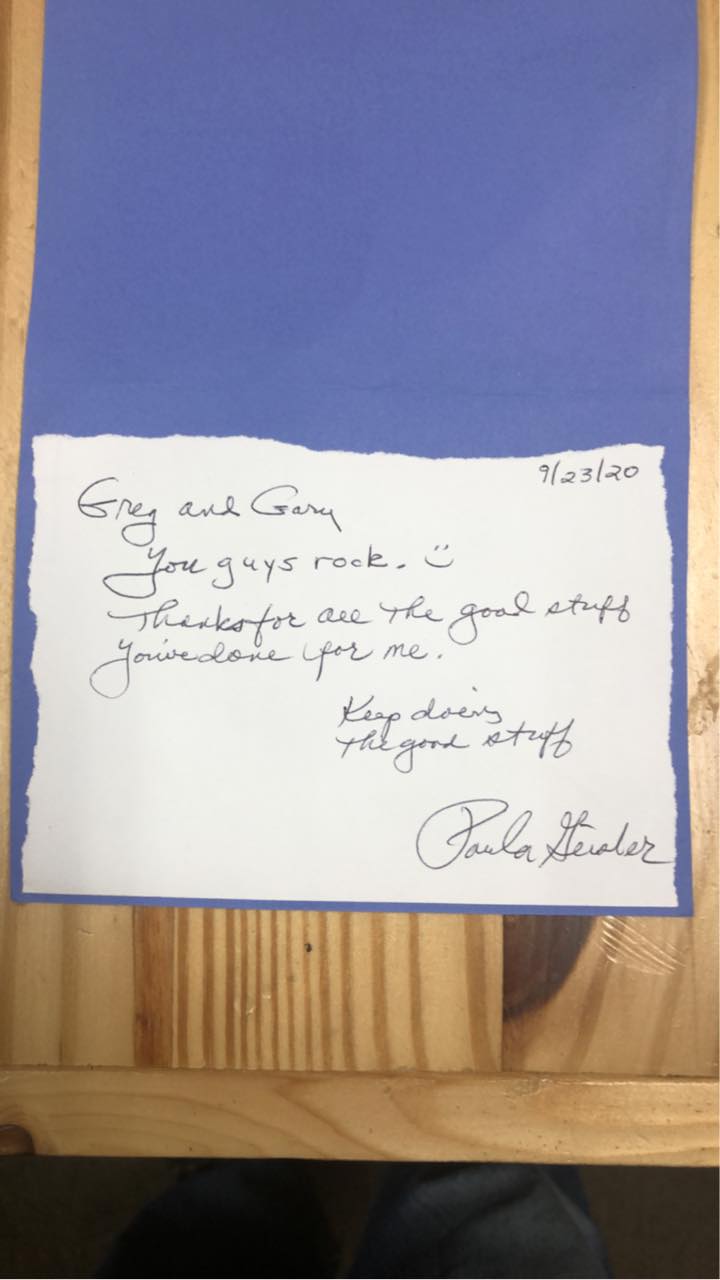 9/23/20
Greg and Gary
You guys rock. :)
Thanks for all the good stuff
you've done for me.
Keep doing
the good stuff
Paula